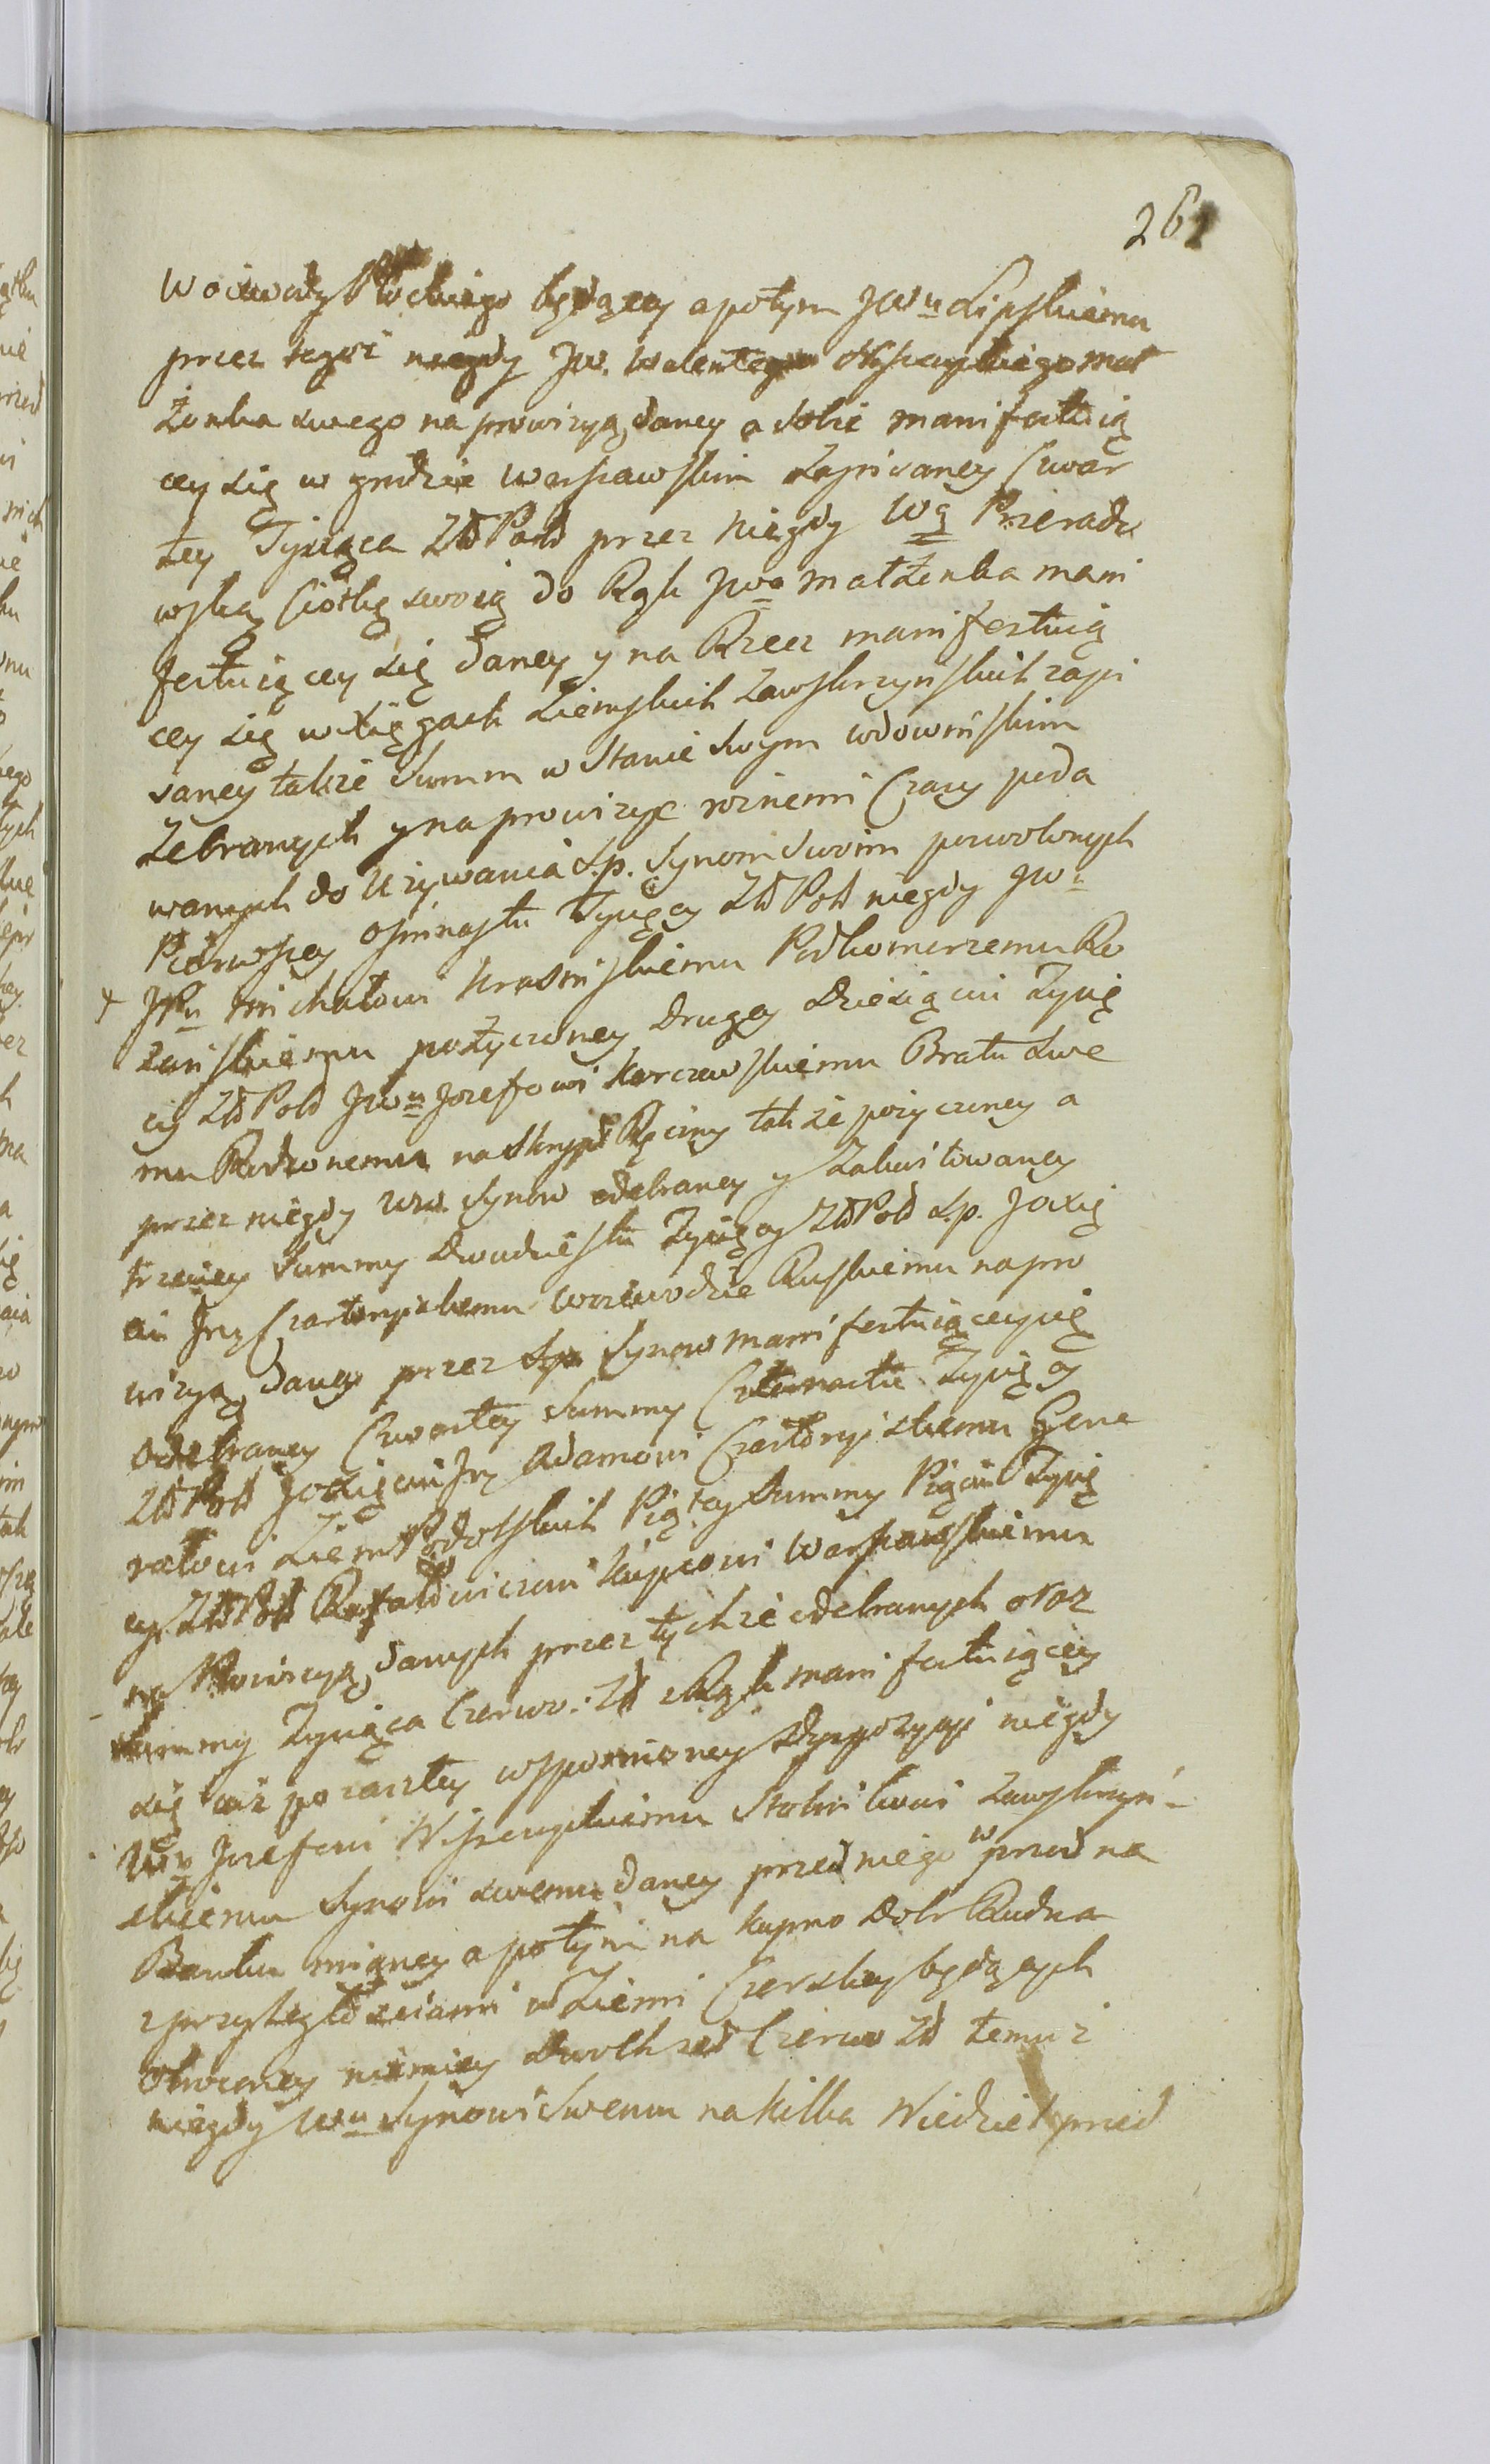 261
Woiewody Płockiego będącey a potym JWu Lipskiemu
przez tegoż niegdy JW. Walentego Wyszczyckiego mał
żonka swego na prowizyą daney a sobie manifestuią
cey się w grodzie Warszawskim zapisaney Czwar
tey Tysiąca Złł Poll przez niegdy Wą Pieradz
wską Ciotkę swoią do Rąk JWo małżonka mani
festuiącey się daney y na Rzecz manifestuią
cey się w Xięgach Ziemskich Zawskrzyńskich zapi
saney także Summ w Stanie swym wdowińskim
Zebranych y na prowizye roznemi Czasy poda
wanych do Używania S.p. Synom swoim pozwolonych
Pierwszey osmnastu Tysięcy Złł Poll niegdy JWu
JPu Michałowi Krasińskiemu Podkomorzemu Ro
zańskiemu pożyczoney drugey dziesiąci Tysię
cy Złł Poll JWu Jozefowi Karczewskiemu Bratu swe
mu Rodzonemu na Skrypt Ręczny także pożyczoney a
przez niegdy WW. Synow odebraney y Zakwitowaney
trzeciey Summy dwudziestu Tysięcy Złł Poll S.p. JOXię
ciu Jmci Czartoryskiemu Woiewodzie Ruskiemu na pro
wizyą daney przez Sp. Synow manifestuiąceysię
Odebraney Czwartey Summy Czternastu Tysięcy
Złł Poll JOXięciu Jmci Adamowi Czartoryskiemu Gene
rałowi Ziem Podolskich Piątey Summy Pięciu Tysię
cy Złł Poll Rafałowiczowi Kupcowi Warszawskiemu
na Prowizyą danych przez tychże odebranych oraz
Summy Tysiąca Czerw: Zł z Rąk manifestuiącey
się iuż po zaszłey wspomnioney dyspozycyi niegdy
Wu Jozefowi Wyszczyckiemu Stolnikowi Zawskrzyń-
skiemu Synowi swemu daney przed niego w przod na
Banku mianey a potym na kupno Dobr Rudna
z przyległościami w Ziemi Czerskiey będących
obroconey niemniey dwochset Czerw Zł temuż
niegdy Wu Synowi swemu na kilka Niedziel przed